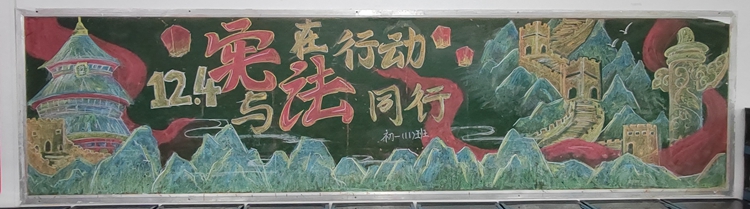 12.4
宪在行动
与法同行
初一(11)班